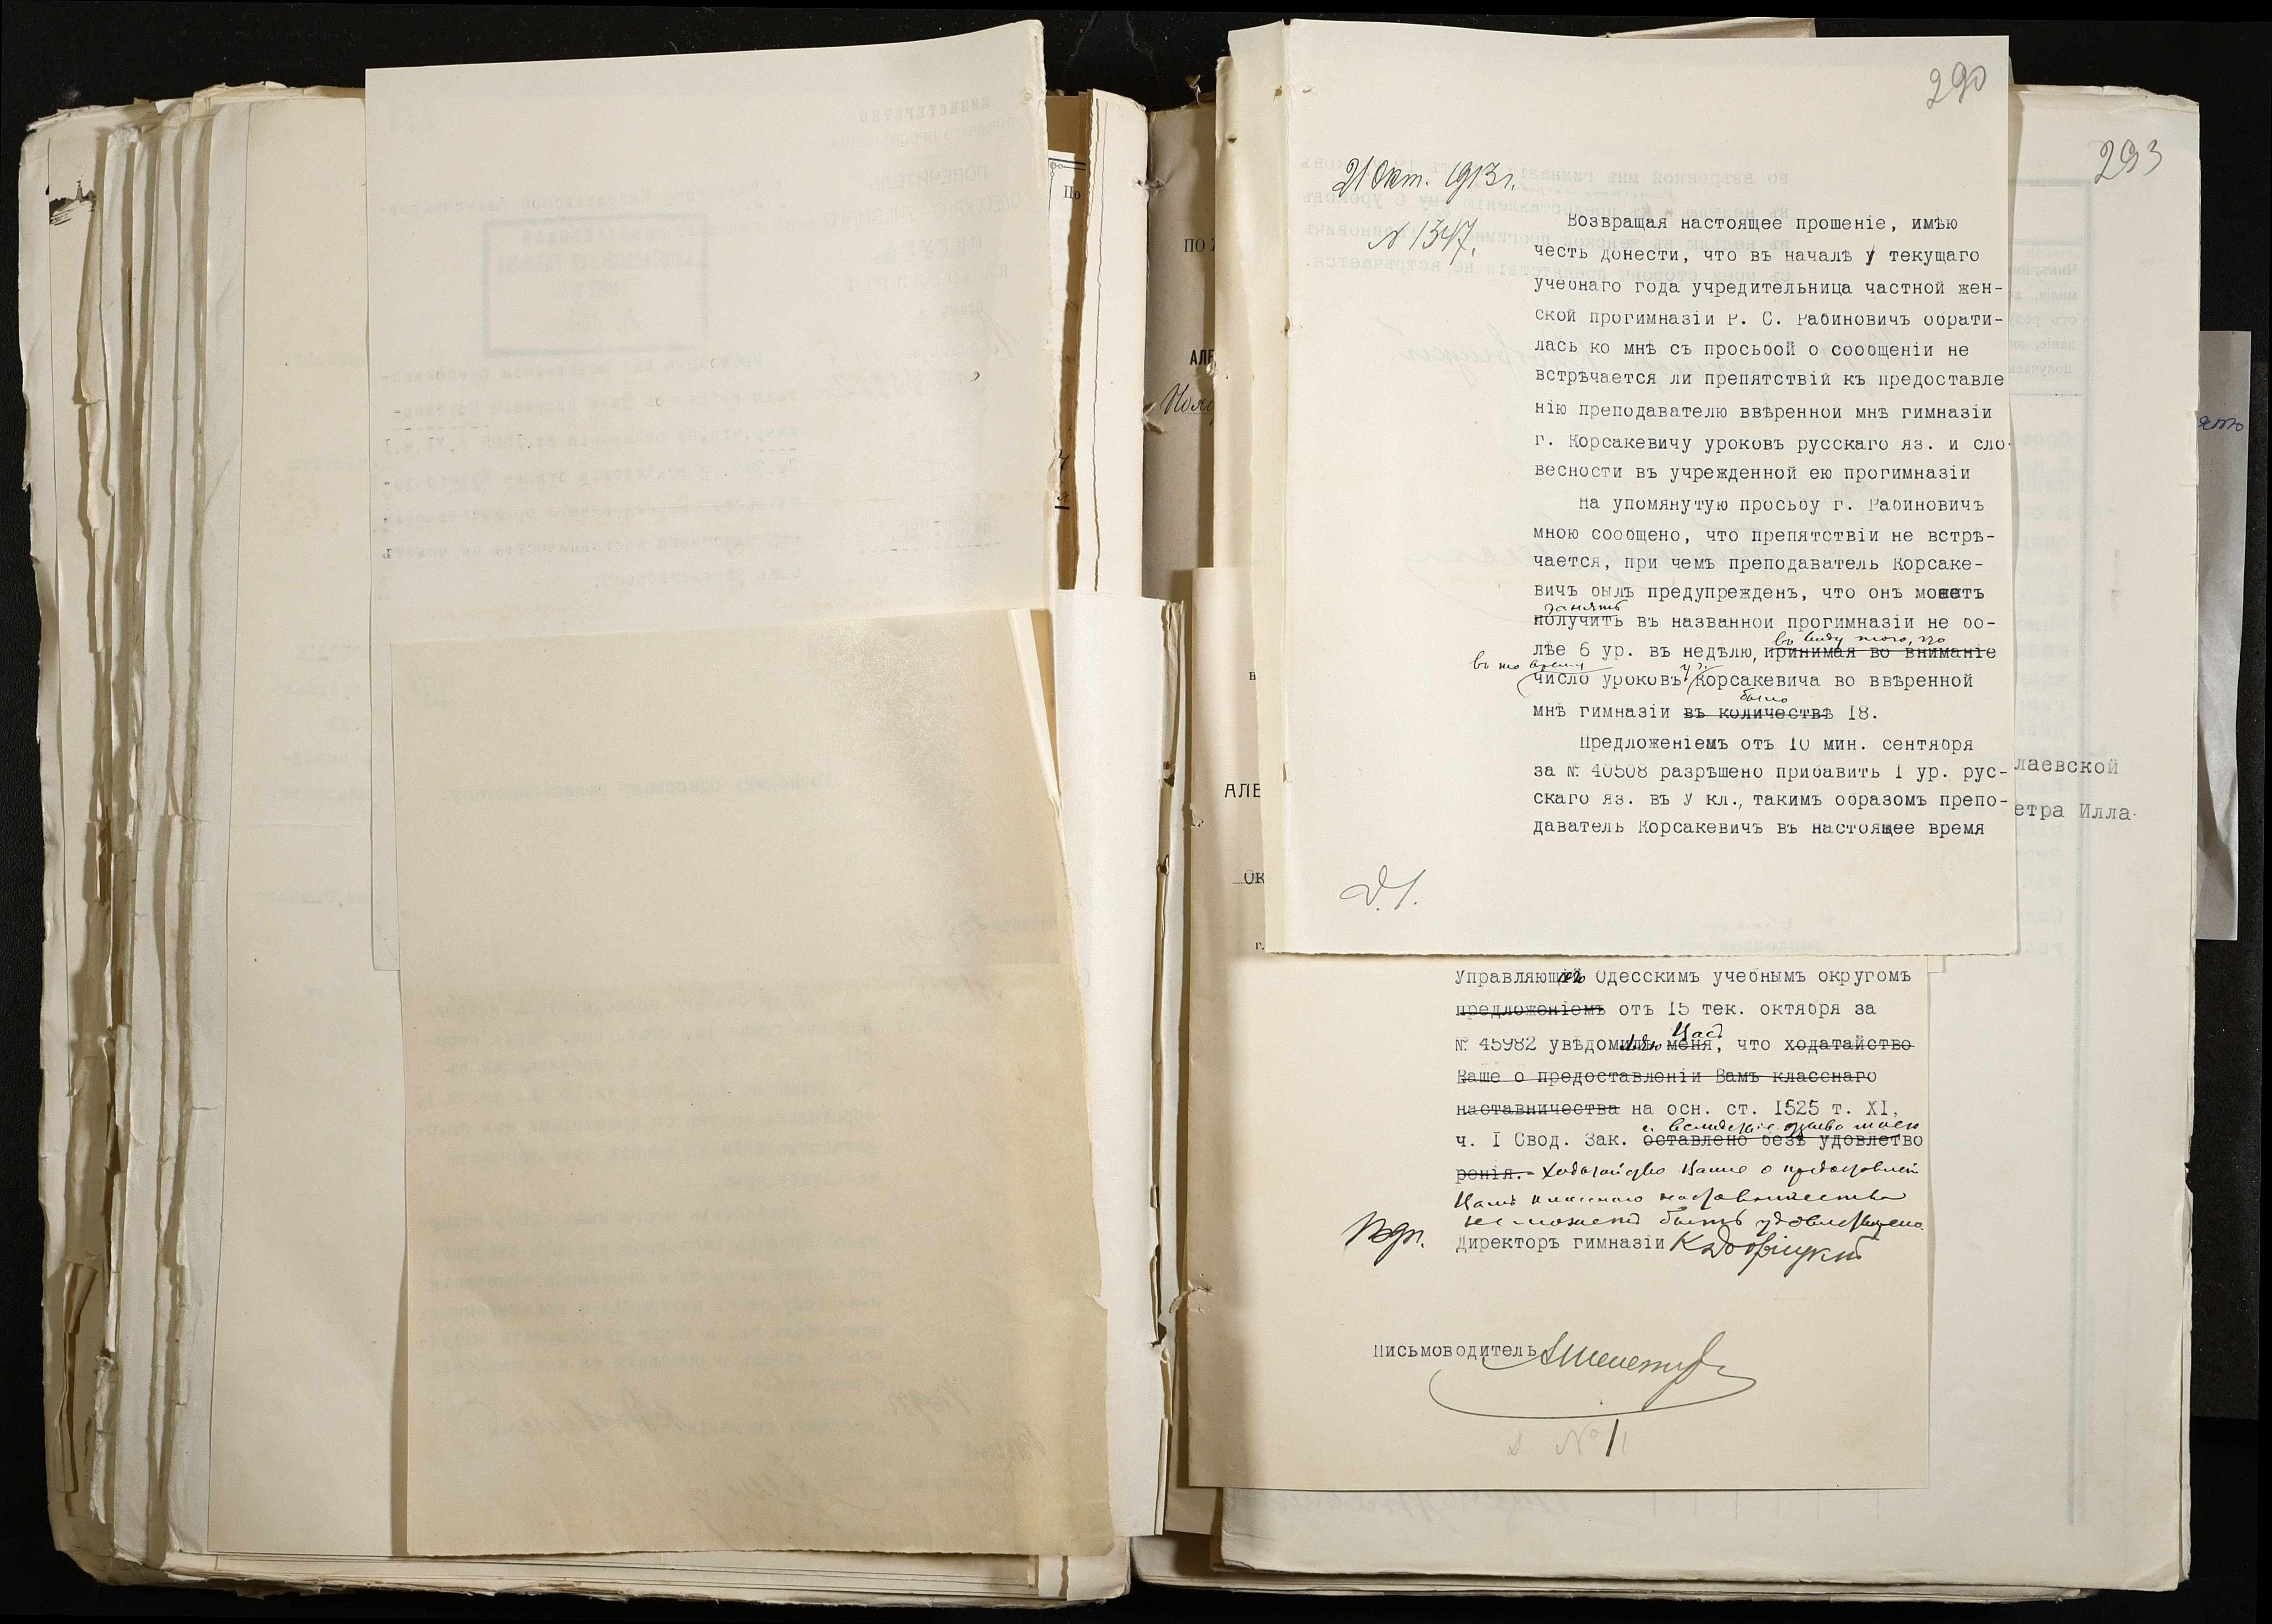 290
293
21 Окт. 1913 г.
№ 1347.
Возвращая настоящее прошеніе, имѣю
честь донести, что въ началѣ текущаго
учебнаго года учредительница частной жен-
ской прогимназіи Р. С. Рабиновичъ обрати-
лась ко мнѣ съ просьбой о сообщеніи не
встрѣчается ли препятствій къ предоставле
нію преподавателю ввѣренной мнѣ гимназіи
г. Корсакевичу уроковъ русскаго яз. и сло-
весности въ учрежденной ею прогимназіи
На упомянутую просьбу г. Рабиновичъ
мною сообщено, что препятствій не встрѣ-
чается, при чемъ преподаватель Корсаке-
вичъ былъ предупрежденъ, что онъ можетъ
занять
получить въ названной прогимназіи не бо-
въ виду того, что
лѣе 6 ур. въ недѣлю, принимая во вниманіе
въ то время у г.
число уроковъ Корсакевича во ввѣренной
было
мнѣ гимназіи въ количествѣ 18.
Предложеніемъ отъ 10 мин. сентября
за № 40508 разрѣшено прибавить 1 ур. рус-
скаго яз. въ У кл., такимъ образомъ препо-
даватель Корсакевичъ въ настоящее время
лаевской
етра Илла-
По
ПО
АЛЕ
ОК
г.
Управляющій Одесскимъ учебнымъ округомъ
предложеніемъ отъ 15 тек. октября за
Вас
№ 45982 увѣдомилъ меня, что ходатайство
Ваше о предоставленіи Вамъ класснаго
наставничества на осн. ст. 1525 т. XI,
и вслѣдствіе отзыва моего
ч. I Свод. Зак. оставлено безъ удовлетво
ренія.- Ходатайство Ваше о предоставленіи
Вамъ класснаго наставничества
не можетъ быть удовлетворено.
Подп. Директоръ гимназіи
Письмоводитель
№ 11